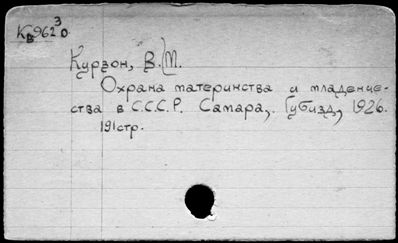 Кв962 3/0
Курзон, В.М.
Охрана материнства и младенче-
ства в С.С.С.Р. Самара, Губизд, 1926.
191стр.